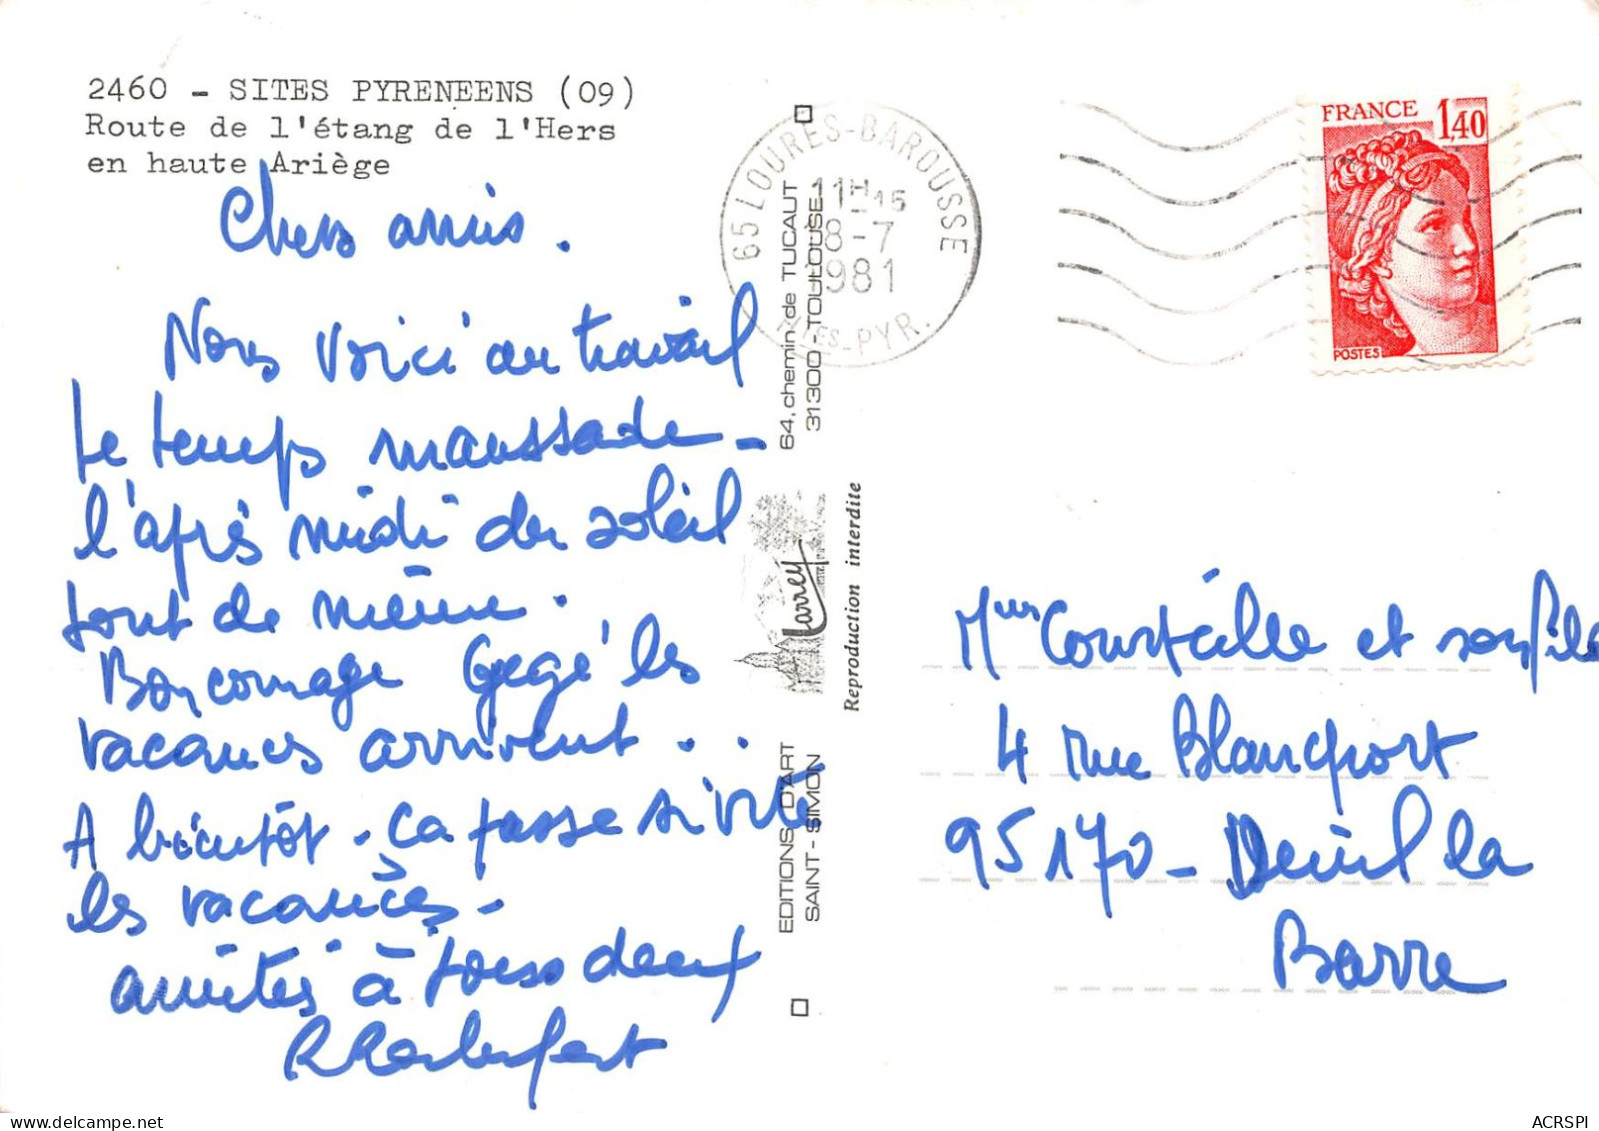 2460 - SITES PYRENEENS (09)
Route de l'étang de l'Hers
en haute Ariège
Chers amis.
Nous voici au travail
le temps maussade -
l'après midi du soleil
tout de même.
Bon courage Gégé les
vacances arrivent . .
A bientôt - ça passe si vite
les vacances -
amitiés à tous deux
65 LOURES-BAROUSSE
11H-15
8-7
1981
HTES-PYR.
64, chemin de TUCAUT
31300 - TOULOUSE
Larrey
Reproduction interdite
EDITIONS D'ART
SAINT-SIMON
FRANCE 1,40
POSTES
Mme Courteille et son fils
4 rue Blancport
95170 - Deuil la
Barre
ACRSPI